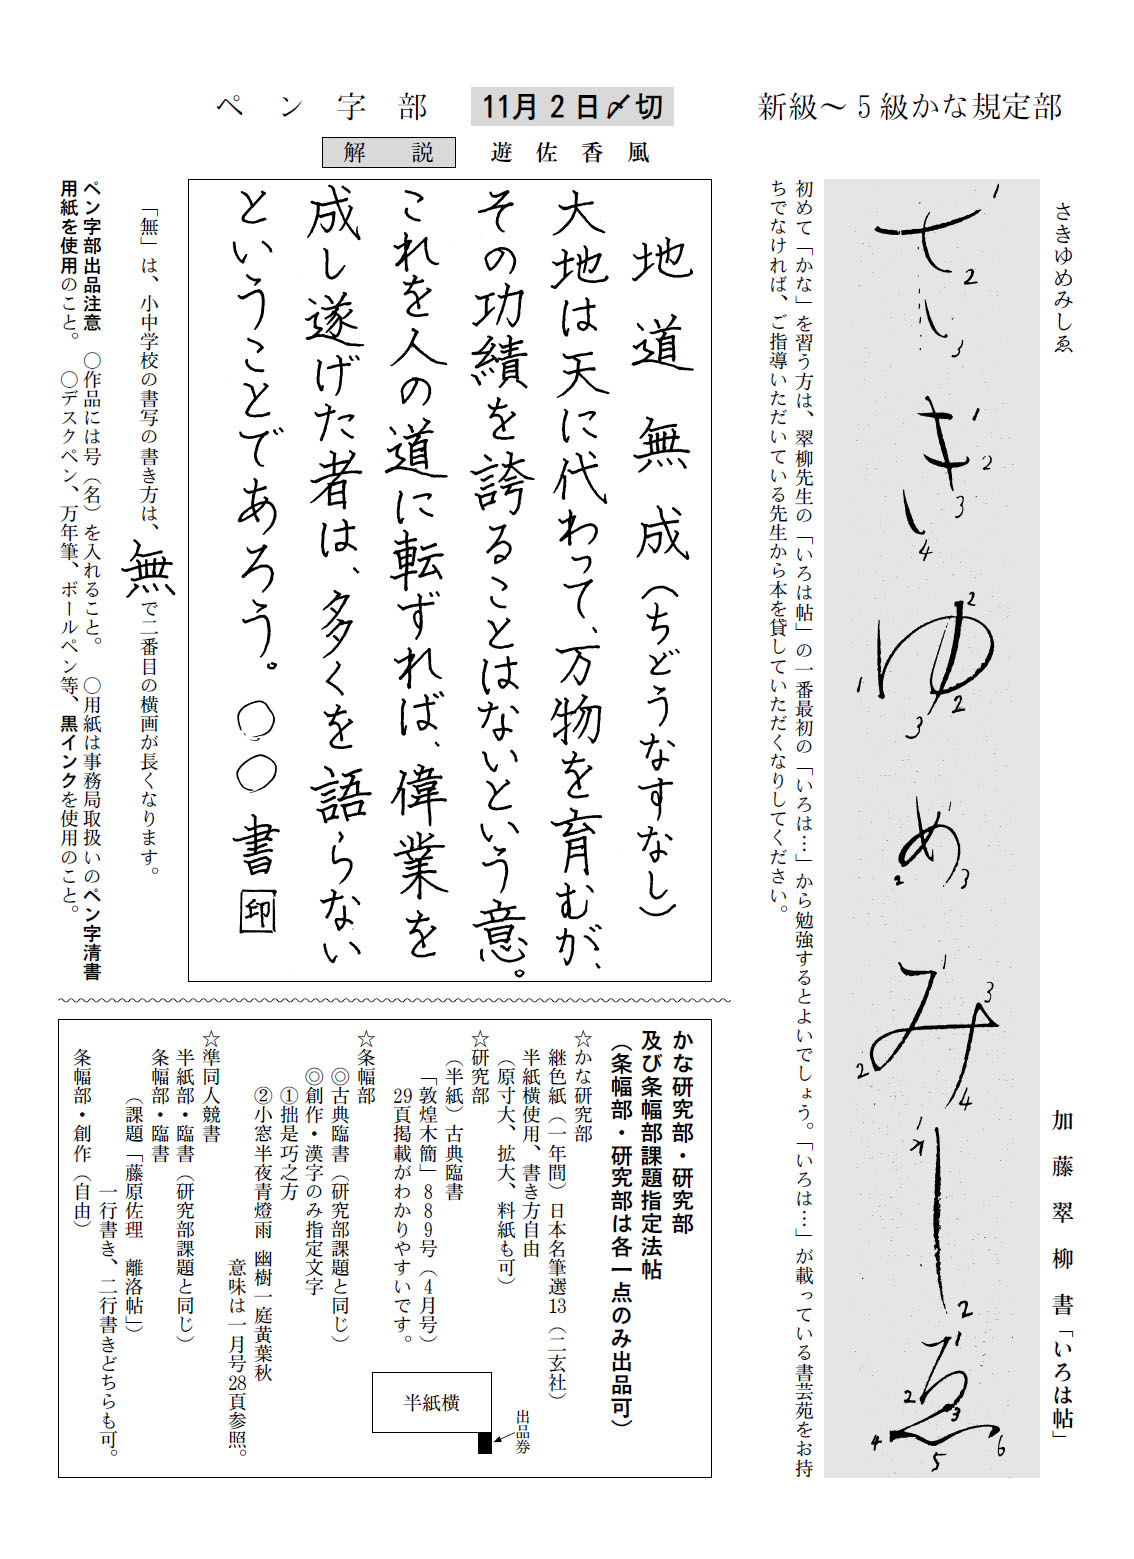 新級〜5級かな規定部
さきゆめみしゑ
加藤翠柳書「いろは帖」
さ
き
ゆ
め
み
し
ゑ
初めて「かな」を習う方は、翠柳先生の「いろは帖」の一番最初の「いろは…」から勉強するとよいでしょう。「いろは…」が載っている書芸苑をお持
ちでなければ、ご指導いただいている先生から本を貸していただくなりしてください。
ペン字部
11月2日〆切
解説
遊佐香風
地道無成(ちどうなすなし)
大地は天に代わって、万物を育むが、
その功績を誇ることはないという意。
これを人の道に転ずれば、偉業を
成し遂げた者は、多くを語らない
ということであろう。〇〇書印
「無」は、小中学校の書写の書き方は、無で二番目の横画が長くなります。
ペン字部出品注意 〇作品には号(名)を入れること。 〇用紙は事務局取扱いのペン字清書
用紙を使用のこと。 〇デスクペン、万年筆、ボールペン等、黒インクを使用のこと。
かな研究部・研究部
及び条幅部課題指定法帖
(条幅部・研究部は各一点のみ出品可)
☆かな研究部
継色紙(一年間)日本名筆選13(二玄社)
半紙横使用、書き方自由
(原寸大、拡大、料紙も可)
☆研究部
(半紙)古典臨書
「敦煌木簡」889号(4月号)
29頁掲載がわかりやすいです。
半紙横
出品券
☆条幅部
◎古典臨書(研究部課題と同じ)
◎創作・漢字のみ指定文字
①拙是巧之方
②小窓半夜青燈雨 幽樹一庭黄葉秋
意味は一月号28頁参照。
☆準同人競書
半紙部・臨書(研究部課題と同じ)
条幅部・臨書
(課題「藤原佐理 離洛帖」)
一行書き、二行書きどちらも可。
条幅部・創作(自由)